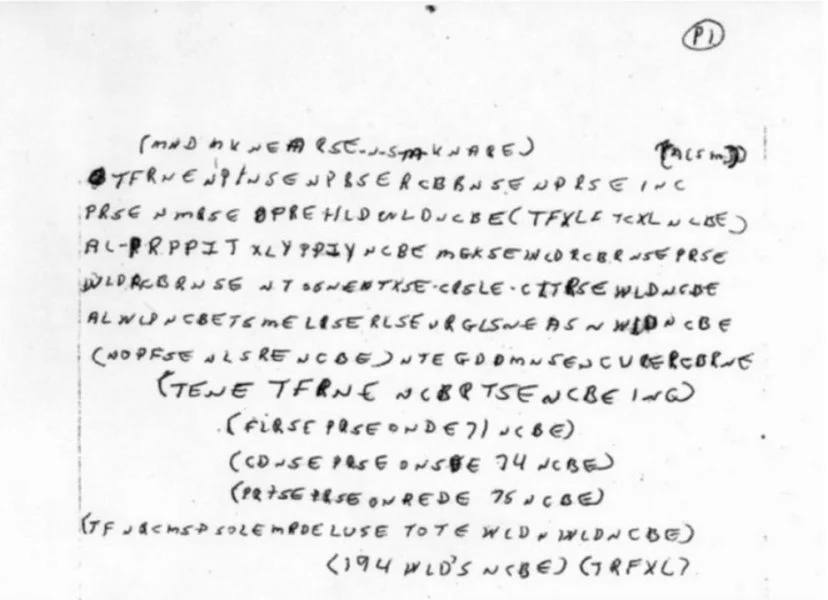 P1
(MND MKNEARSE-N-S-M-KNARE) (ACSM)
TFRNE NPINSE NPBSE RCBBNSE NPRSE INC
PRSE NMRSE OPRE HLD WLD NCBE (TFXLF TCXL NCBE)
AL-PRPPIT XLY PPIY NCBE MGKSE WLD RCBRNSE PRSE
WLD RCBRNSE NT SGNENTXSE-CRSLE-CITRSE WLD NCBE
AL WLD NCBE TSME LRSE RLSE URGLSNE AS N WLD NCBE
(NOPFSE NLSRE NCBE) NTE GDDMNSE NCURE RCBRNE
(TENE TFRNE NCBRTSE NCBE ING)
(FLRSE PRSE ONDE 71 NCBE)
(CDNSE PRSE ONSDE 74 NCBE)
(PRTSE PRSE ONREDE 75 NCBE)
(TFNQCMSP SOLE MRDE LUSE TOTE WLD N WLD NCBE)
(194 WLD'S NCBE) (TRFXL)